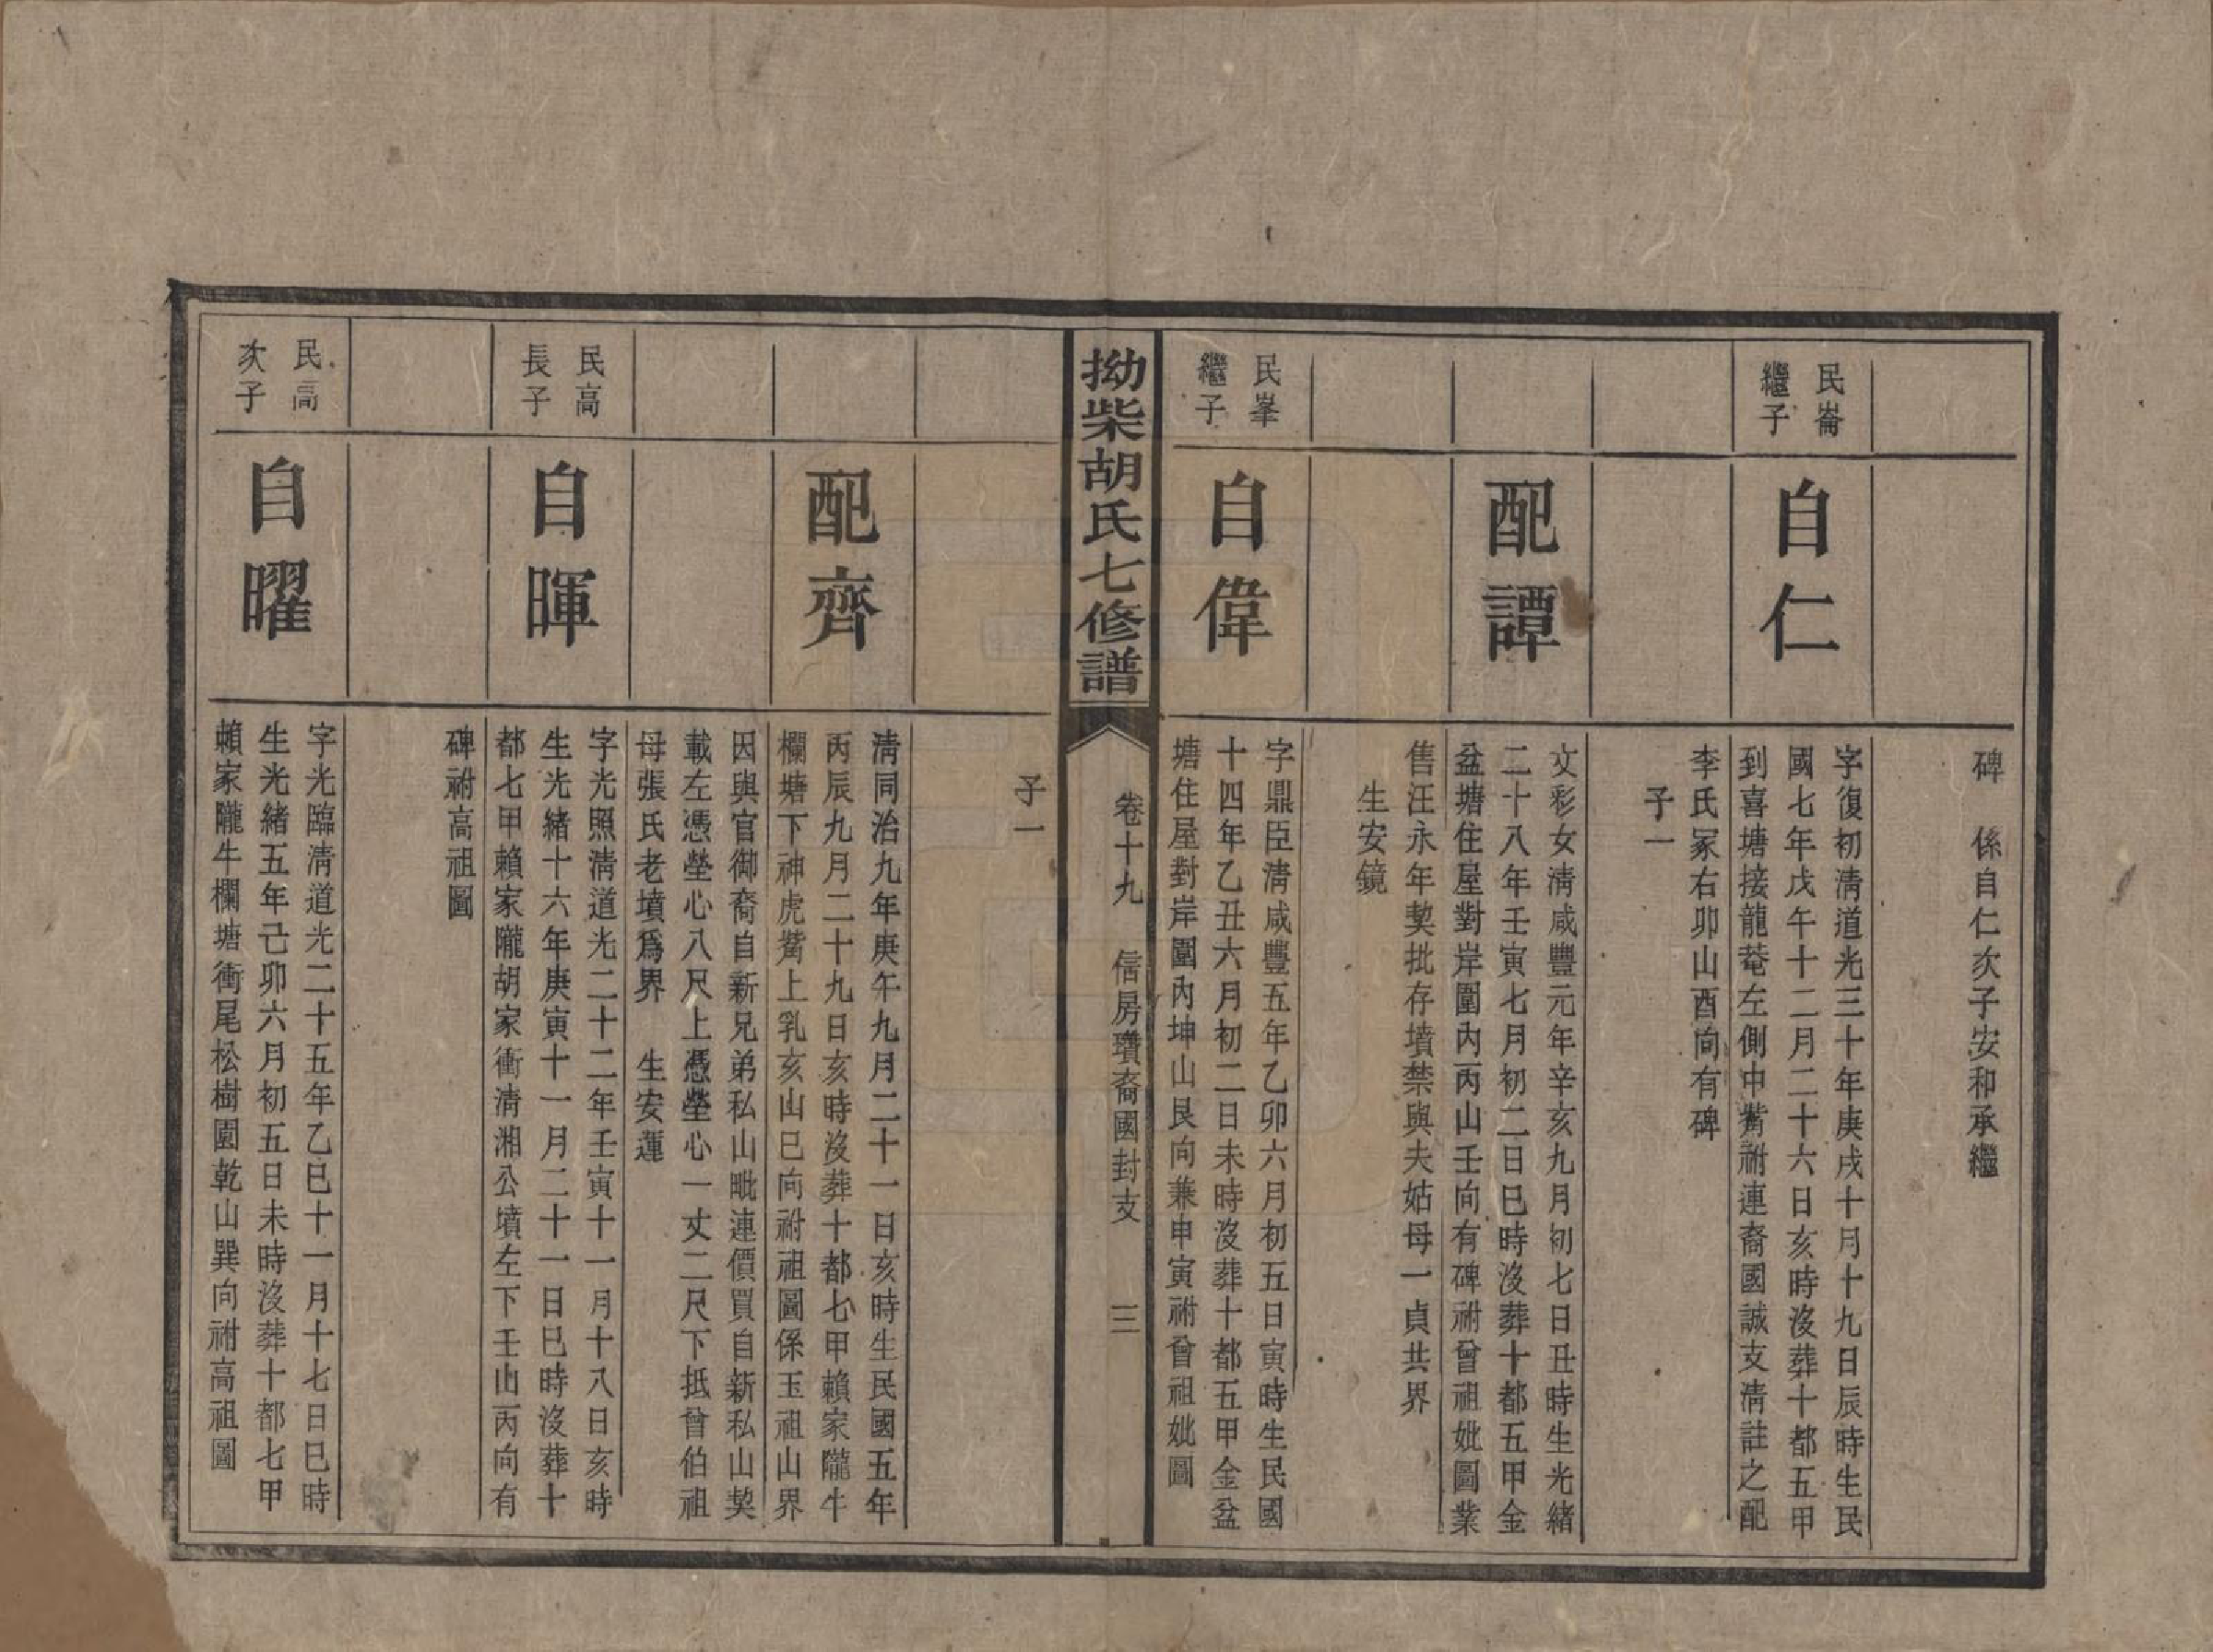 碑　係自仁次子安和承繼
民崙
繼子
自仁
字復初淸道光三十年庚戌十月十九日辰時生民
國七年戊午十二月二十六日亥時沒葬十都五甲
到喜塘接龍菴左側中觜祔連裔國誠支淸註之配
李氏冢右卯山酉向有碑
子一
配譚
文彩女淸咸豐元年辛亥九月初七日丑時生光緒
二十八年壬寅七月初二日巳時沒葬十都五甲金
盆塘住屋對岸圍內丙山壬向有碑祔曾祖妣圖業
售汪永年契批存墳禁與夫姑母一貞共界
生安鏡
民峯
繼子
自偉
字鼎臣淸咸豐五年乙卯六月初五日寅時生民國
十四年乙丑六月初二日未時沒葬十都五甲金盆
塘住屋對岸圍內坤山艮向兼申寅祔曾祖妣圖
拗柴胡氏七修譜
卷十九　信房瓚裔國封支　三
子一
配齊
淸同治九年庚午九月二十一日亥時生民國五年
丙辰九月二十九日亥時沒葬十都七甲賴家隴牛
欄塘下神虎觜上乳亥山巳向祔祖圖係玉祖山界
因與官御裔自新兄弟私山毗連價買自新私山契
載左憑塋心八尺上憑塋心一丈二尺下抵曾伯祖
母張氏老墳爲界　生安蓮
民高
長子
自暉
字光照淸道光二十二年壬寅十一月十八日亥時
生光緒十六年庚寅十一月二十一日巳時沒葬十
都七甲賴家隴胡家衝淸湘公墳左下壬山丙向有
碑祔高祖圖
民高
次子
自曜
字光臨淸道光二十五年乙巳十一月十七日巳時
生光緒五年己卯六月初五日未時沒葬十都七甲
賴家隴牛欄塘衝尾松樹園乾山巽向祔高祖圖